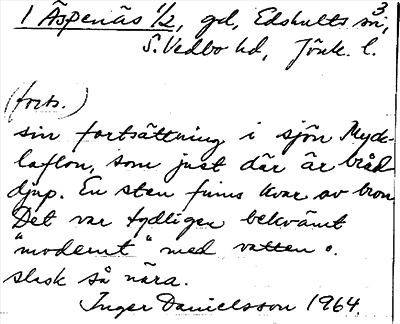 3
1 Äspenäs 1/2, gd, Edshults sn,
S. Vedbo hd, Jönk. l.
(forts.)
sin fortsättning i sjön Myde-
laflon, som just där är bråd
djup. En sten finns kvar av bron
Det var tydligen bekvämt
"modernt" med vatten o.
slask så nära.
Inger Danielsson 1964.